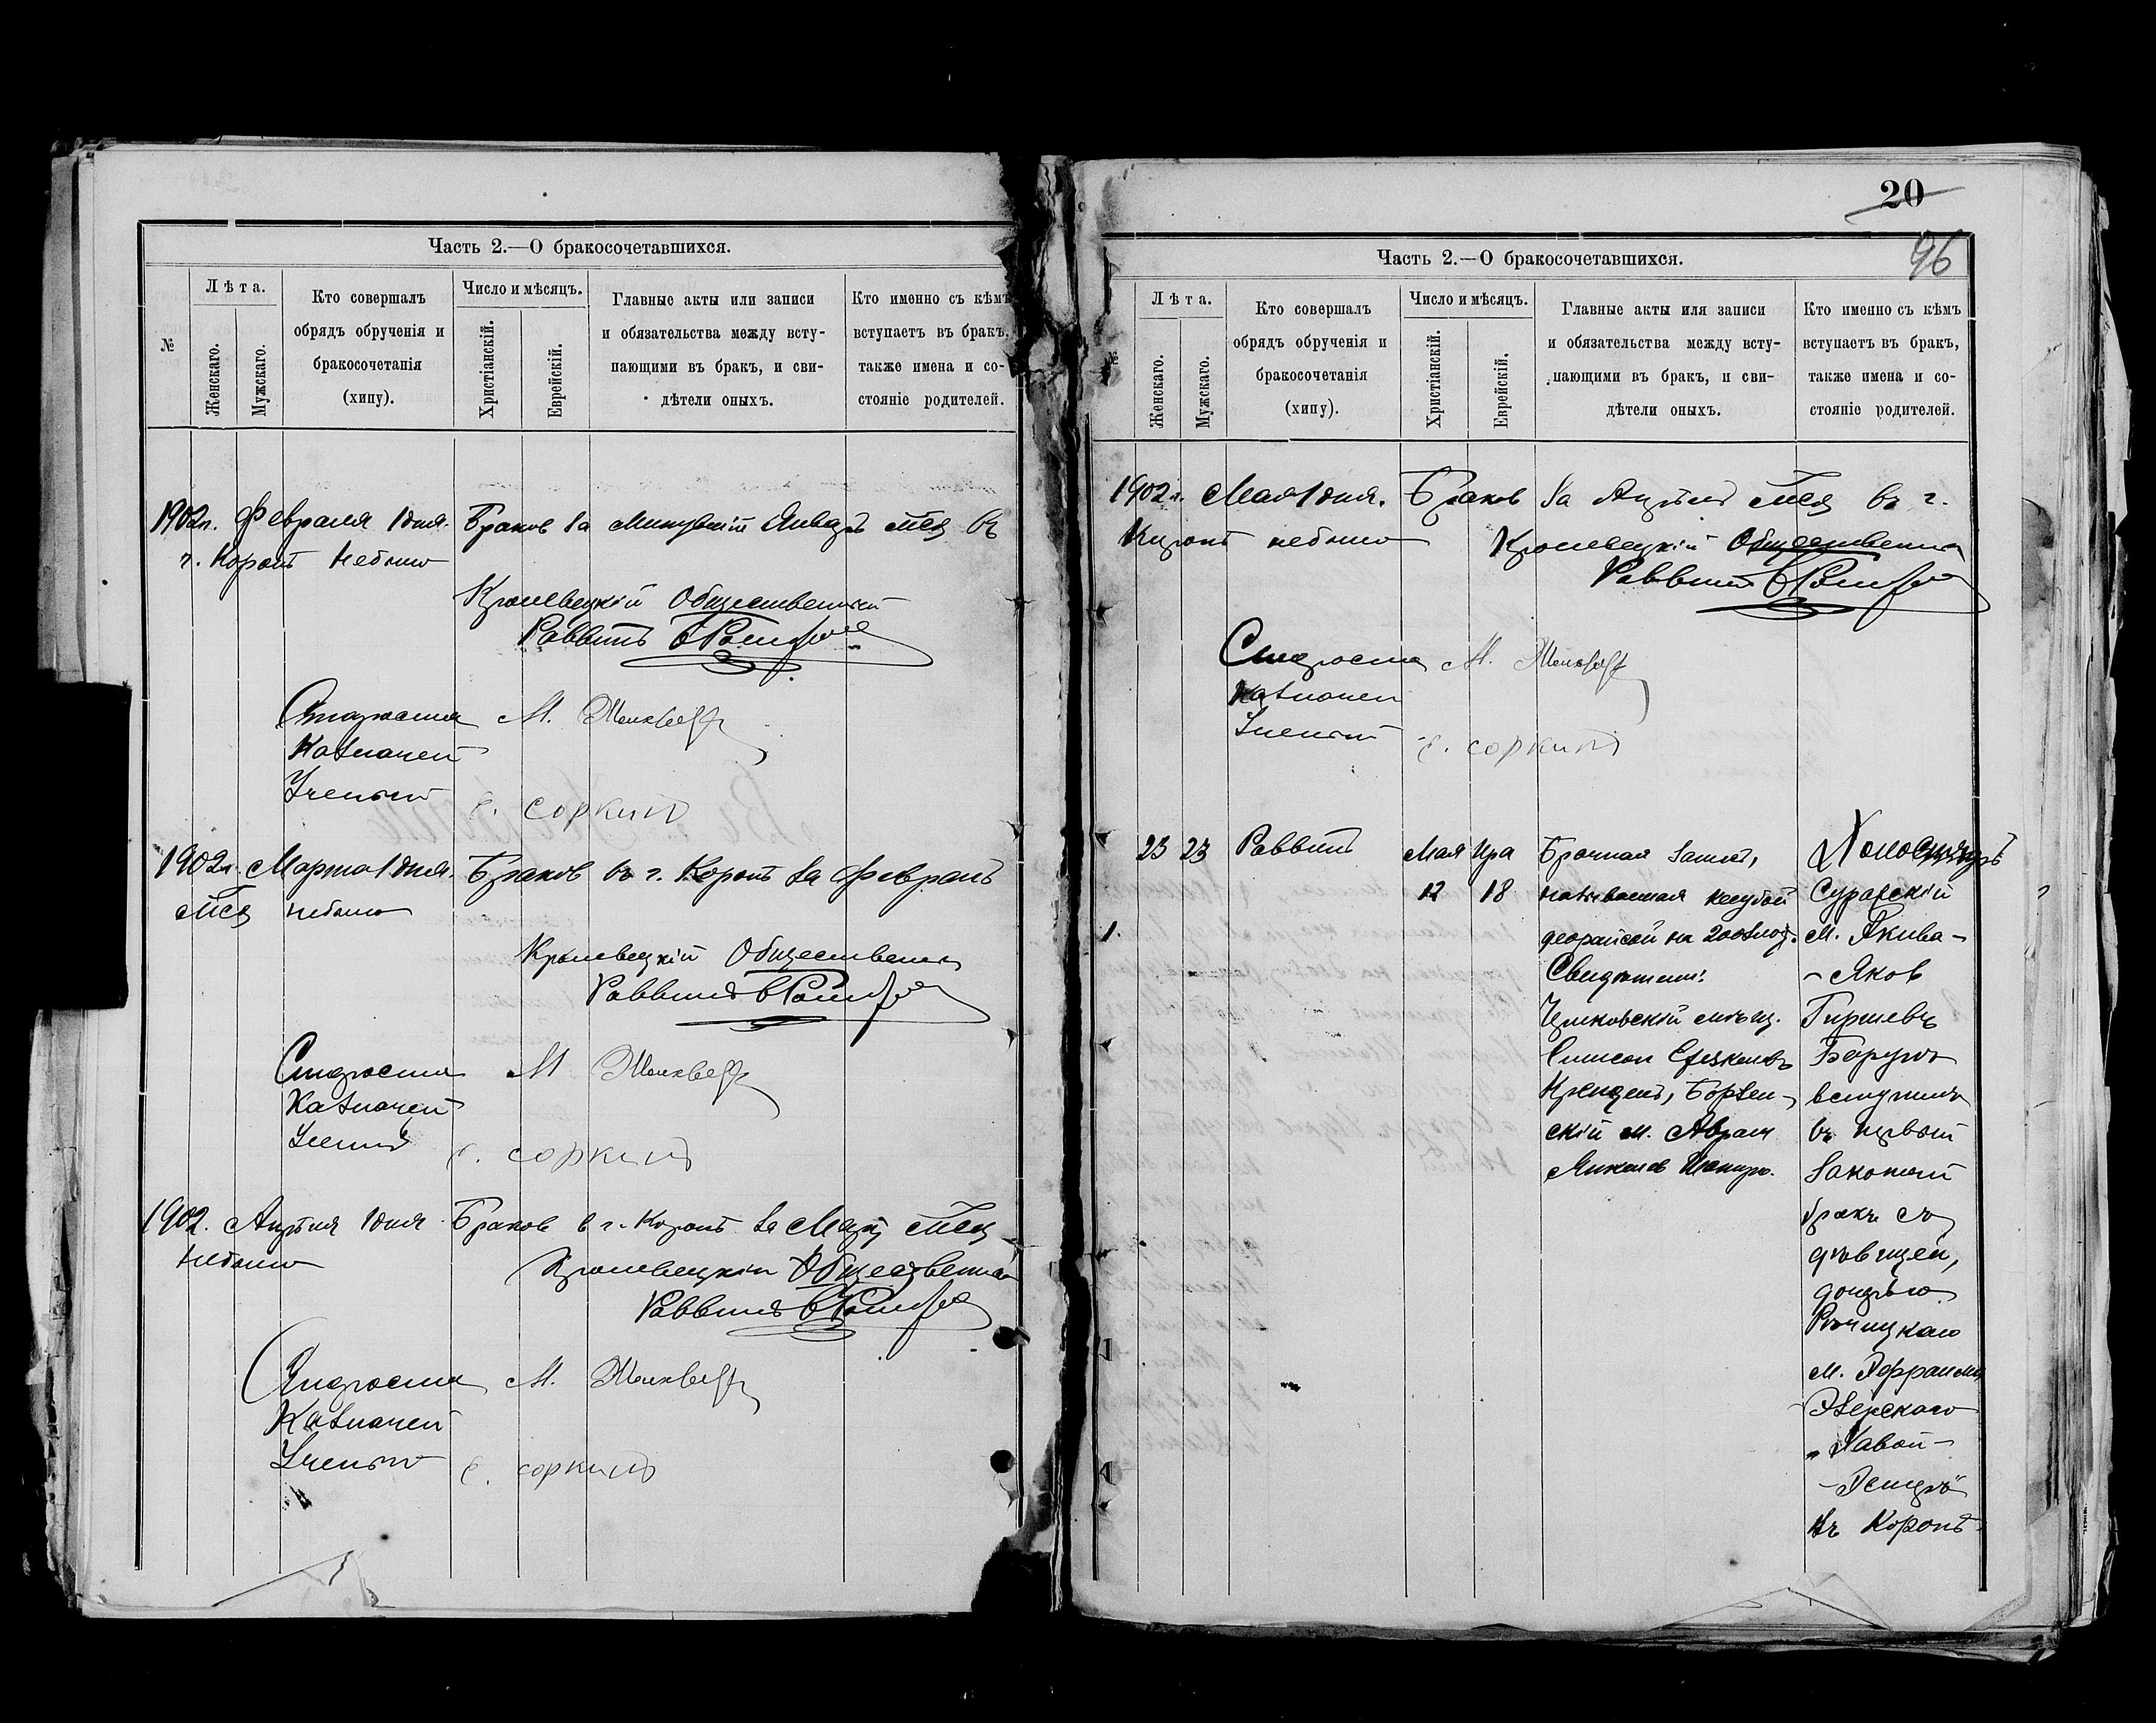 Часть 2.—О бракосочетавшихся.
№
Лѣта.
Женскаго.
Мужскаго.
Кто совершалъ
обрядъ обрученія и
бракосочетанія
(хипу).
Число и мѣсяцъ.
Христіанскій.
Еврейскій.
Главные акты или записи
и обязательства между всту-
пающими въ бракъ, и сви-
дѣтели оныхъ.
Кто именно съ кѣмъ
вступаетъ въ бракъ,
также имена и со-
стояніе родителей.
1902г. Февраля 1 дня. Браков за минувшій Январь м-ця въ
г. Коропѣ небыло
Кролевецкій Общественный
Раввинъ
Староста М.
Казначей
Ученый с. соркинъ
1902г. Марта 1 дня. Браков въ г. Коропѣ за Февраль
м-ця небыло
Кролевецкій Общественный
Раввинъ
Староста М
Казначей
Ученый с. соркинъ
1902. Апрѣля 1 дня Браков в г. Коропѣ за Мартъ м-ця
небыло
Кролевецкій Общественный
Раввинъ
Староста М.
Казначей
Ученый с. соркинъ
20
96
Часть 2.—О бракосочетавшихся.
№
Лѣта.
Женскаго.
Мужскаго.
Кто совершалъ
обрядъ обрученія и
бракосочетанія
(хипу).
Число и мѣсяцъ.
Христіанскій.
Еврейскій.
Главные акты или записи
и обязательства между всту-
пающими въ бракъ, и сви-
дѣтели оныхъ.
Кто именно съ кѣмъ
вступаетъ въ бракъ,
также имена и со-
стояніе родителей.
1902г. Мая 1 дня. Браков за Апрѣль м-ця въ г.
Коропѣ небыло
Кролевецкій Общественный
Раввинъ
Староста М.
Казначей
Ученый с. соркинъ
1.
23 23 Раввинъ
Мая Ира
12 18
Брачная запись,
называемая кесубой
деорайсой на 200 злот.
Свидѣтели:
мѣщ.
Симсон
Борзен-
скій м. Абрам
Холостякъ
Суражскій
м. Акива-
-Яков
Гиршевъ
Борухъ
вступилъ
въ первый
законный
бракъ съ
дѣвицей,
дочерью
Рѣчицкаго
м. Эфраима
Озерскаго
Хавой-
-Эстрой
въ Коропѣ.